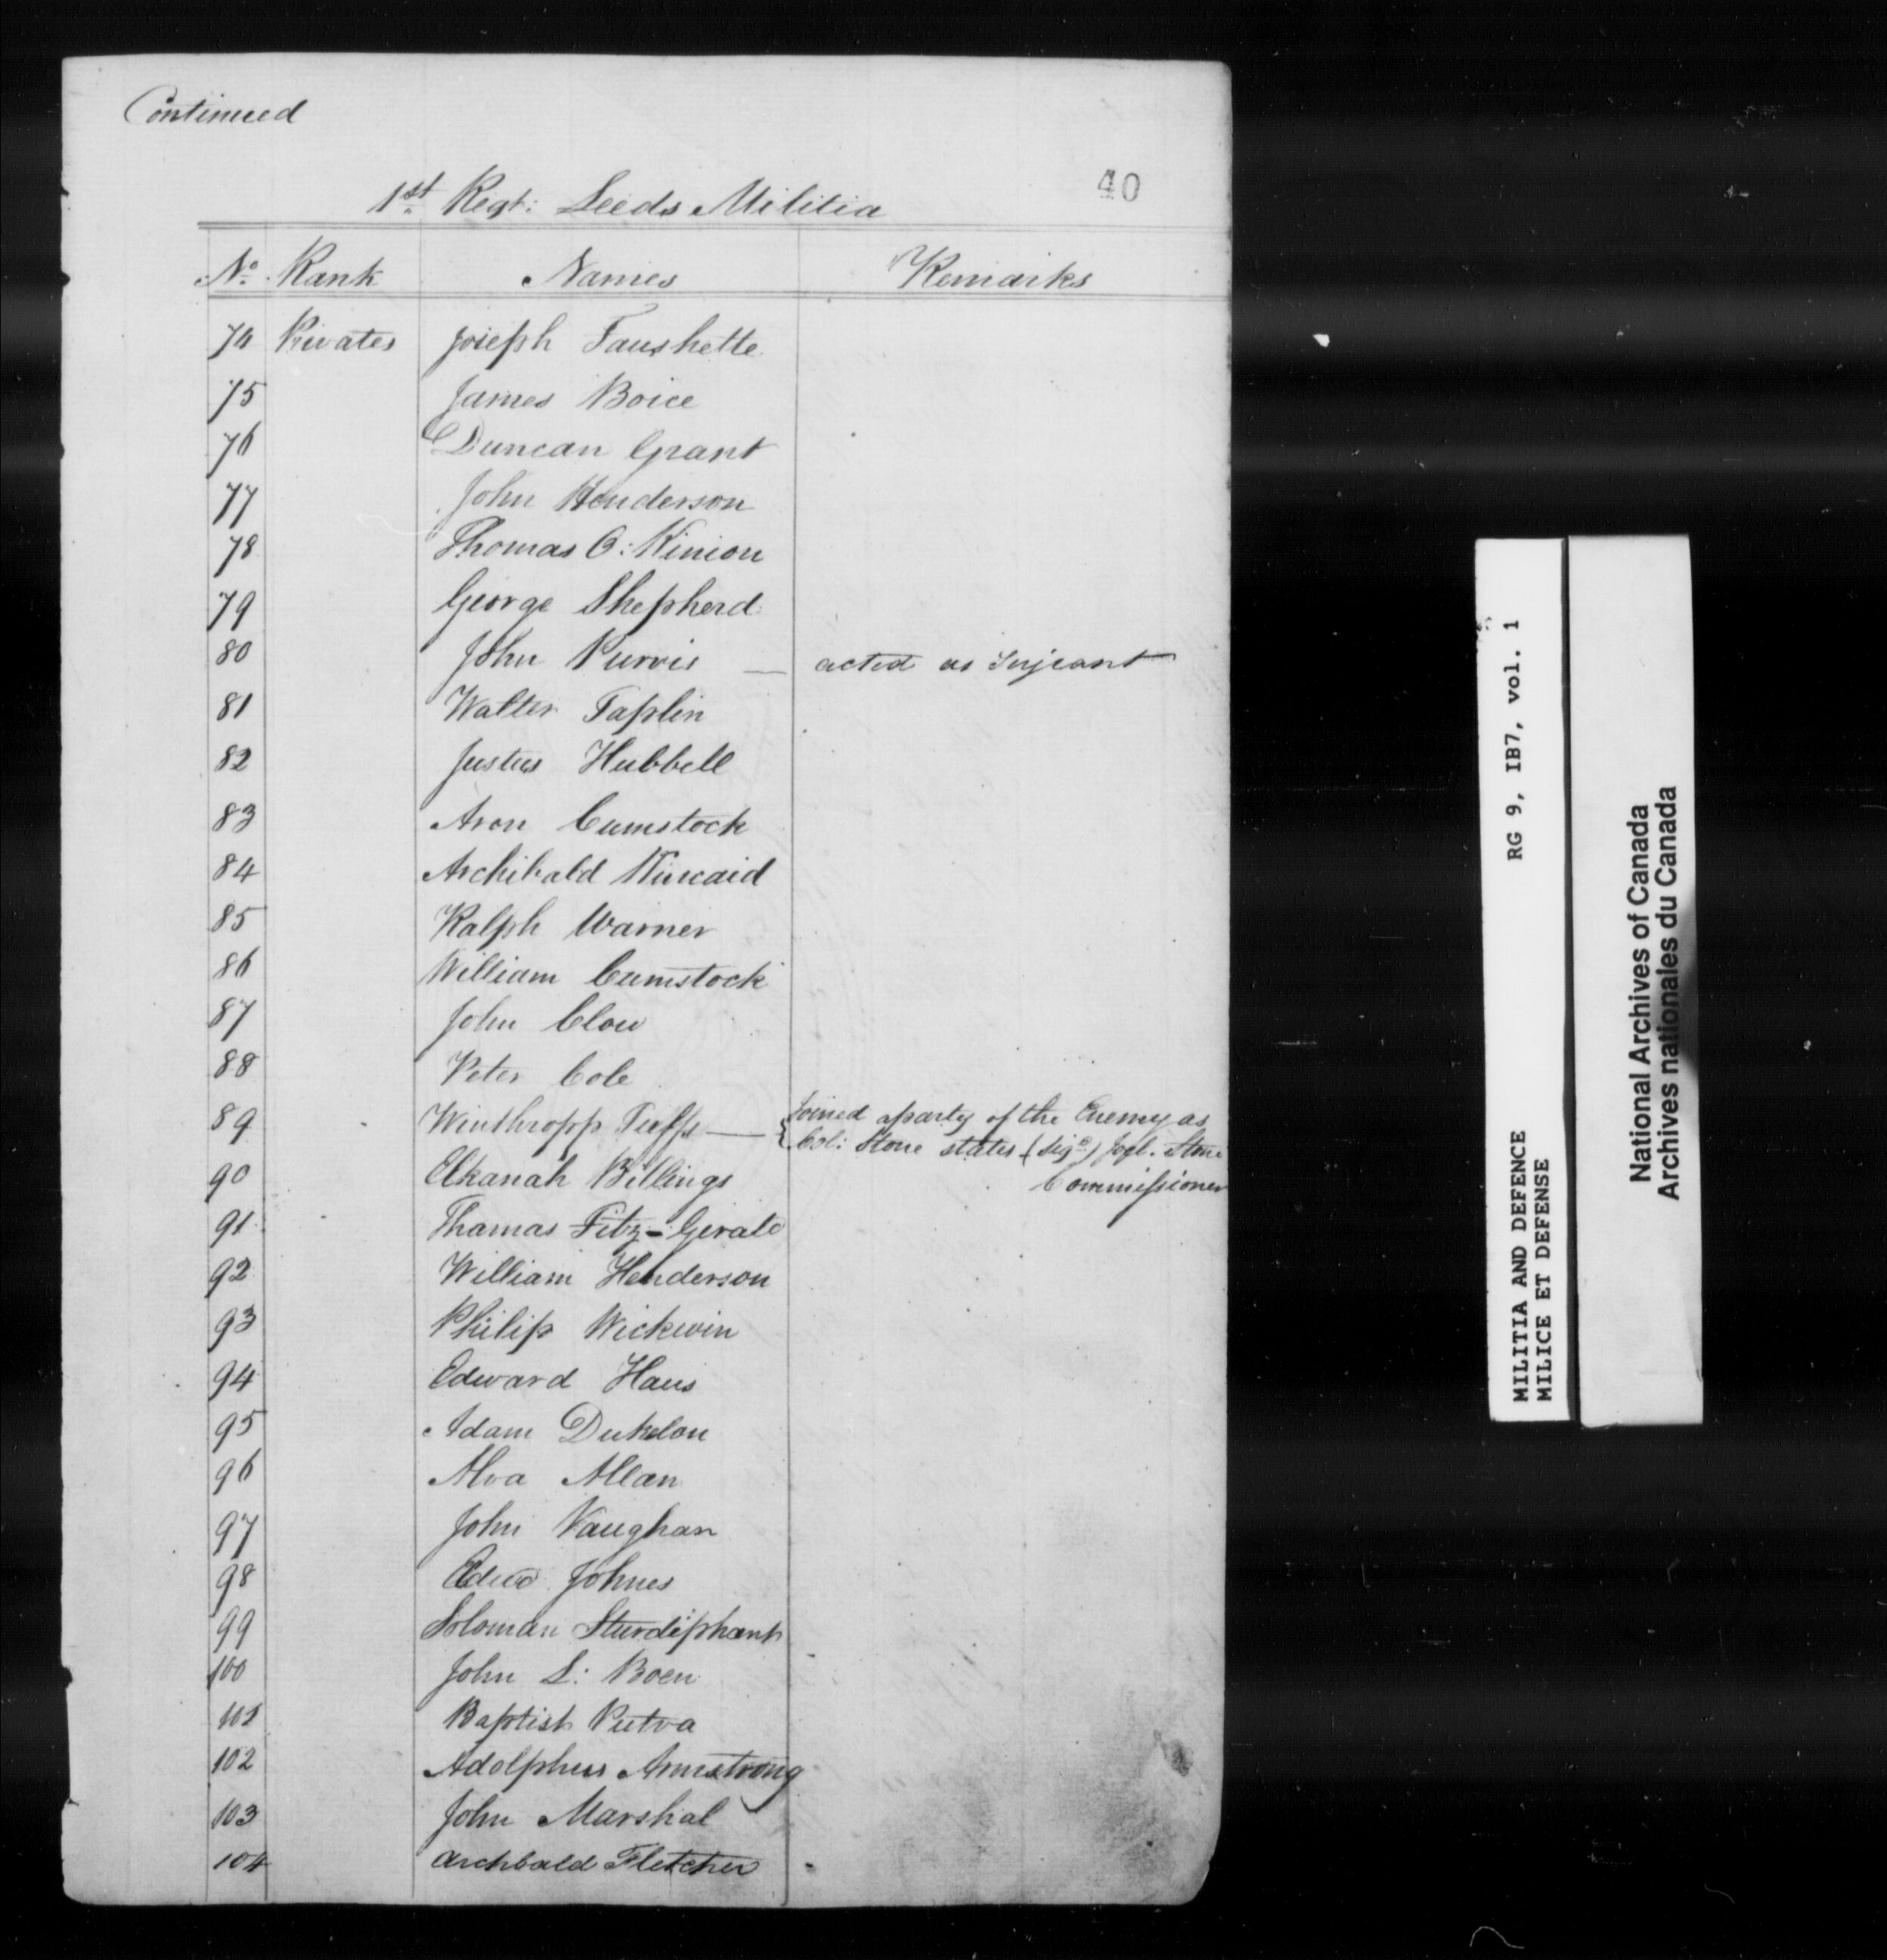 Continued
40
1st Regt: Leeds Militia
No. Rank Names Remarks
74 Privates Joseph Faushette
75 James Boice
76 Duncan Grant
77 John Henderson
78 Thomas O: Kinion
79 George Shepherd
80 John Purvis — acted as Serjeant
81 Walter Taplin
82 Justus Hubbell
83 Aron Cumstock
84 Archibald Kincaid
85 Ralph Warner
86 William Cumstock
87 John Clow
88 Peter Cole
89 Winthropp — { Joined a party of the Enemy as
Col: Stone states (Sigd) Joel Stone
Commissioner
90 Elkanah Billings
91 Thamas Fitz-Gerald
92 William Henderson
93 Philip Wickwin
94 Edward Haus
95 Adam Dukelon
96 Alva Allan
97 John Vaughan
98 Edwd Johnes
99 Soloman Sturdiphant
100 John L: Boen
101 Baptist Putva
102 Adolphus Armstrong
103 John Marshal
104 Archbald Fletcher
MILITIA AND DEFENCE RG 9, IB7, vol. 1
MILICE ET DEFENSE
National Archives of Canada
Archives nationales du Canada